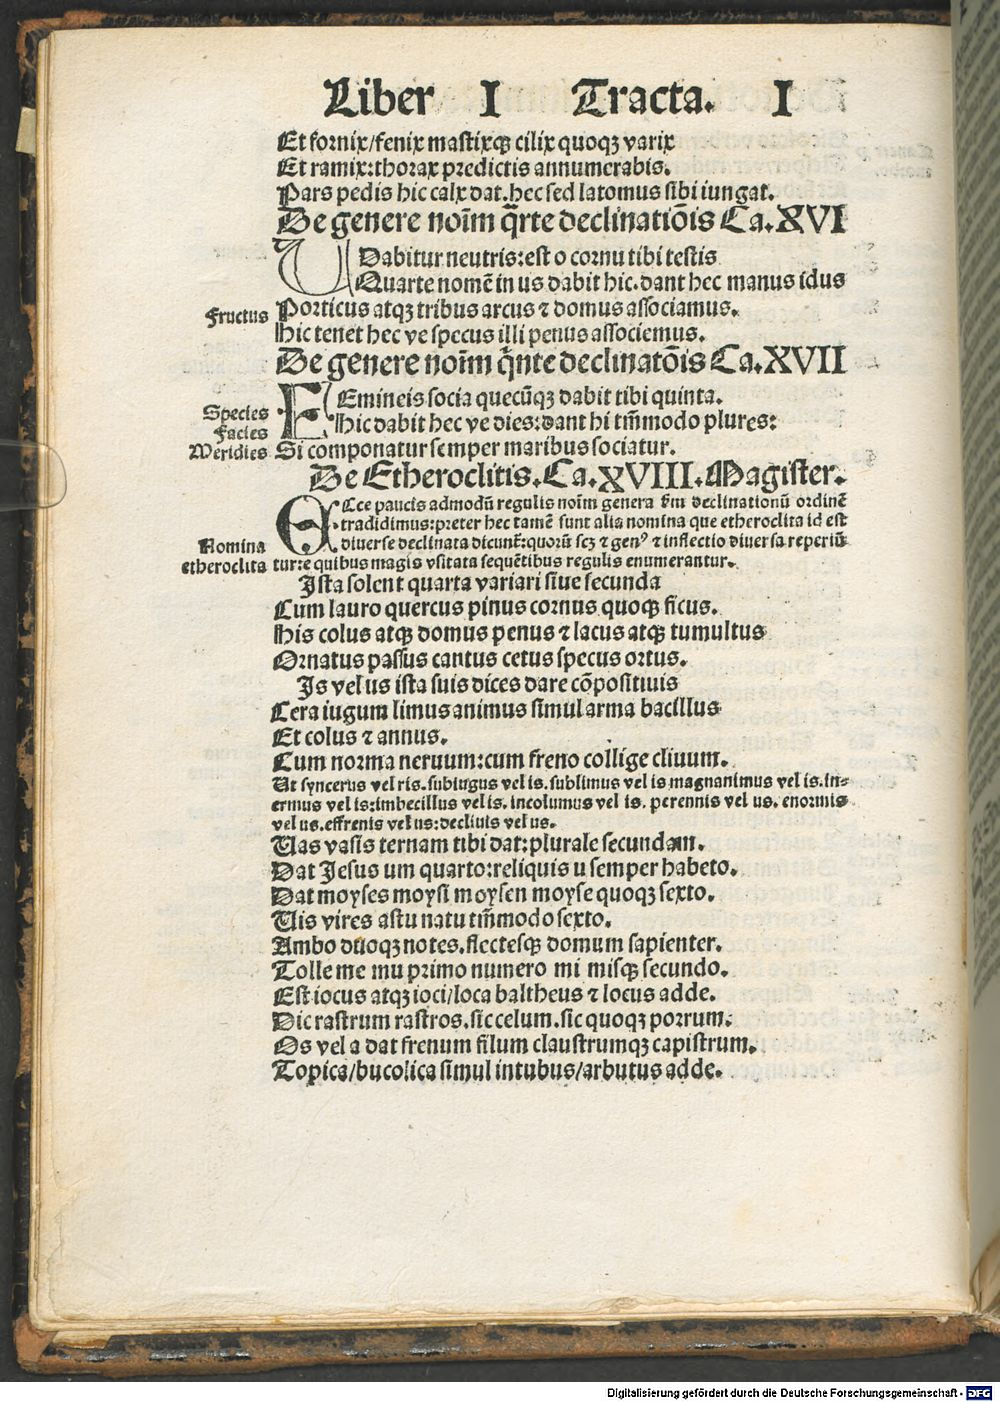 Liber I Tracta. I
Et fornix/fenix mastixqꝫ cilix quoqꝫ varix
Et ramix: thorax predictis annumerabis.
Pars pedis hic calx dat. hec sed latomus sibi iungat.
De genere noīm q̄rte declinatiōis Ca. XVI
U Dabitur neutris: est o cornu tibi testis
Quarte nomē in us dabit hic. dant hec manus idus
Fructus
Porticus atqꝫ tribus arcus ⁊ domus associamus.
Hic tenet hec ve specus illi penus associemus.
De genere noīm q̄nte declinatōis Ca. XVII
FEmineis socia quecūqꝫ dabit tibi quinta.
Hic dabit hec ve dies: dant hi tm̄modo plures:
Si componatur semper maribus sociatur.
Species
Facies
Meridies
De Etheroclitis. Ca. XVIII. Magister.
ECce paucis admodū regulis noīm genera km̄ declinationū ordinē
tradidimus: preter hec tamē sunt alia nomina que etheroclita id est
diuerse declinata dicunt̄: quorū scꝫ ⁊ gen⁹ ⁊ inflectio diuersa reperiū
tur: e quibus magis vsitata sequētibus regulis enumerantur.
Nomina
etheroclita
Ista solent quarta variari siue secunda
Cum lauro quercus pinus cornus quoqꝫ ficus.
His colus atqꝫ domus penus ⁊ lacus atqꝫ tumultus
Ornatus passus cantus cetus specus ortus.
Is vel us ista suis dices dare cōpositiuis
Cera iugum limus animus simul arma bacillus
Et colus ⁊ annus.
Cum norma neruum: cum freno collige cliuum.
Ut syncerus vel ris. subiugus vel is. sublimus vel is magnanimus vel is. in-
ermus vel is: imbecillus vel is. incolumus vel is. perennis vel us. enormis
vel us. effrenis vel us: decliuis vel us.
Uas vasis ternam tibi dat: plurale secundam.
Dat Jesus um quarto: reliquis u semper habeto.
Dat moyses moysi moysen moyse quoqꝫ sexto.
Uis vires astu natu tm̄modo sexto.
Ambo duoqꝫ notes. flectesqꝫ domum sapienter.
Tolle me mu primo numero mi misqꝫ secundo.
Est iocus atqꝫ ioci/loca baltheus ⁊ locus adde.
Dic rastrum rastros. sic celum. sic quoqꝫ porrum.
Os vel a dat frenum filum claustrumqꝫ capistrum.
Topica/bucolica simul intubus/arbutus adde.
Digitalisierung gefördert durch die Deutsche Forschungsgemeinschaft - DFG